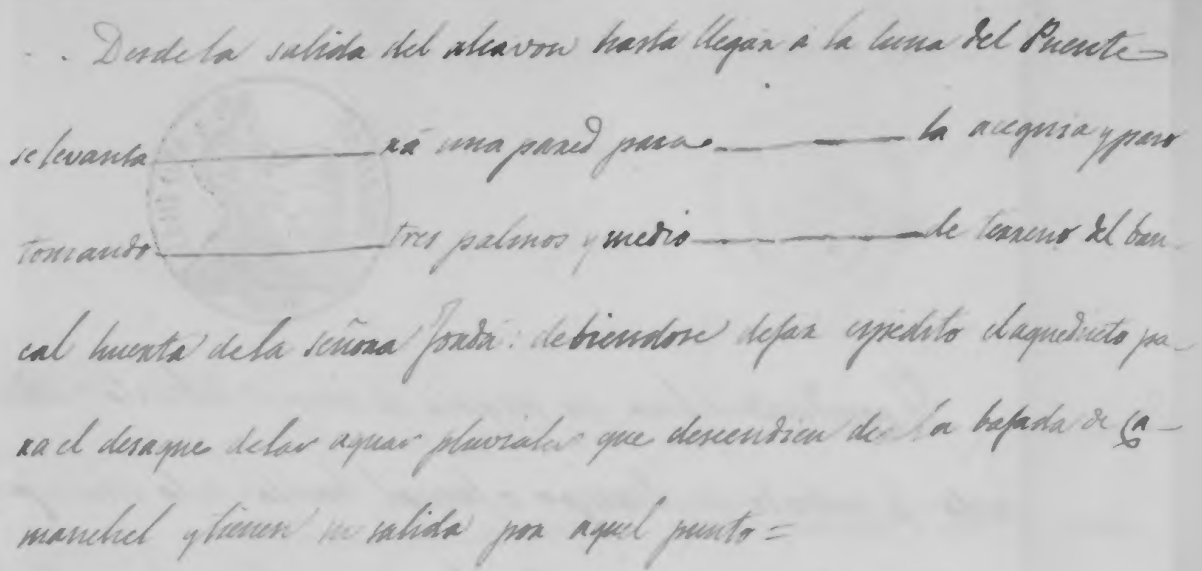 Desde la salida del alcavon hasta llegar á la luna del Puente
se levanta ———— rá una pared para ———— la acequia y paso
tomando ———— tres palmos y medio ———— de terreno del ban-
cal huerta de la señora Jordá: debiendose dejar espedito el aqueducto pa-
ra el desague de las aguas pluviales que descendien de la bajada de Ca-
manchel y tienen su salida por aquel punto =